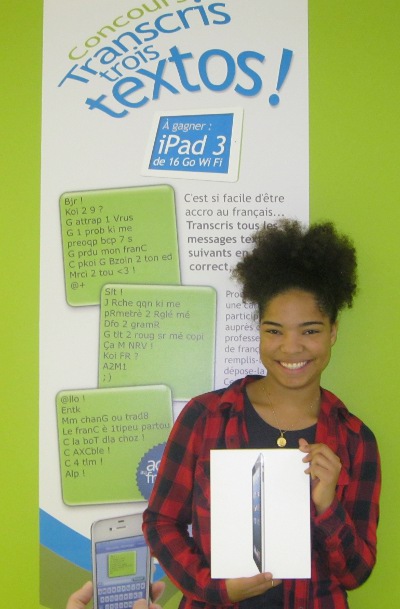 Concours
Transcris
trois
textos!
À gagner :
iPad 3
de 16 Go Wi Fi
Bjr !
Koi 2 9 ?
G attrap 1 Vrus
G 1 prob ki me
preoqp bcp 7 s
G prdu mon franC
C pkoi G Bzoin 2 ton ed
Mrci 2 tou <3 !
@+
C'est si facile d'être
accro au français...
Transcris tous les
messages
suivants en
correct,
Slt !
J Rche qqn ki me
pRmetrè 2 Rglé mé
Dfo 2 gramR
G tit 2 roug sr mé copi
Ça M NRV !
Koi FR ?
A2M1
;)
une
auprès
de
@llo !
Entk
Mm chanG ou trad8
Le franC è 1tipeu partou
C la boT dla choz !
C AXCble !
C 4 tlm !
Alp !